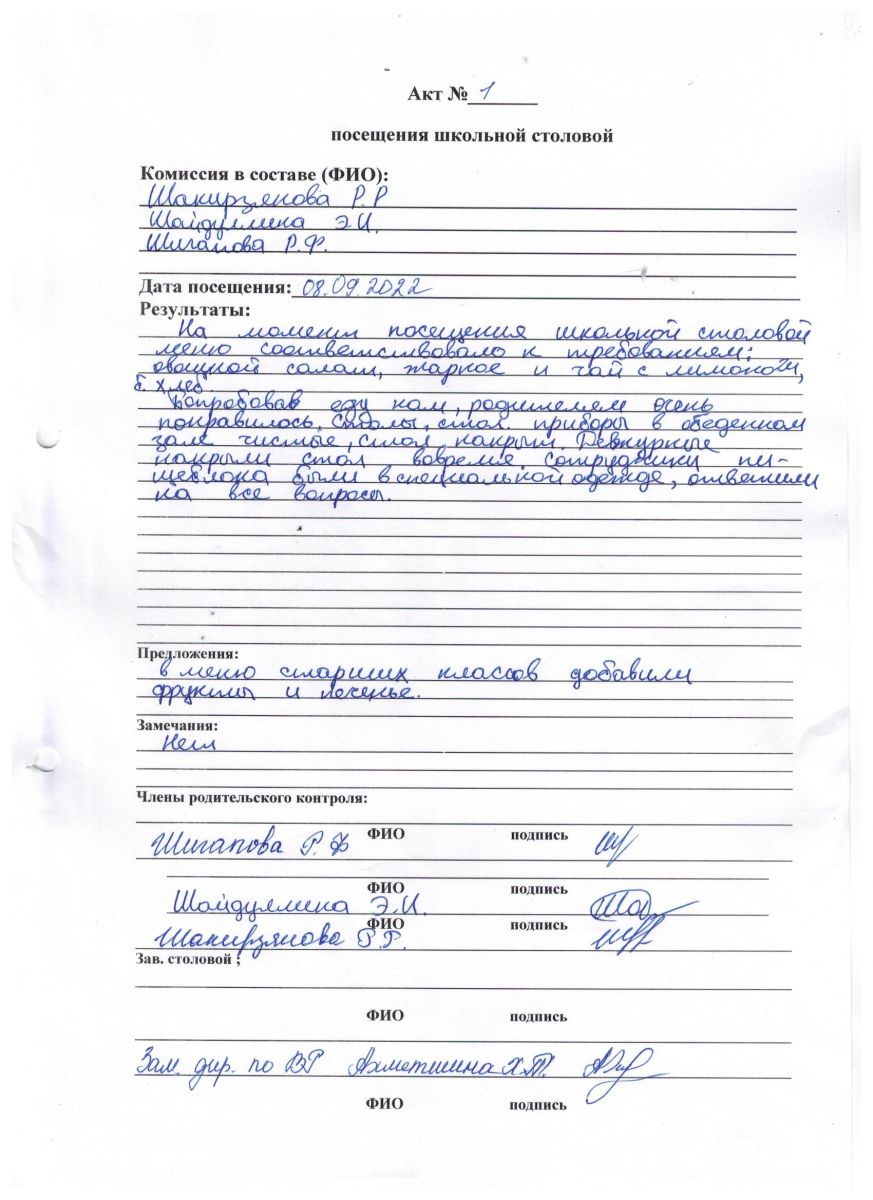 Акт № 1
посещения школьной столовой
Комиссия в составе (ФИО):
Шакирзянова Р.Р
Шайдуллина Э.И.
Шигапова Р.Ф.
Дата посещения: 08.09.2022
Результаты:
На момент посещения школьной столовой
меню соответствовало к требованиям:
овощной салат, жаркое и чай с лимоном,
б. хлеб.
Попробовав еду нам, родителям очень
понравилось. Столы, стол. приборы в обеденном
зале чистые, стол накрыт. Дежурные
накрыли стол вовремя. Сотрудники пи-
щеблока были в специальной одежде, ответили
на все вопросы.
Предложения:
в меню старших классов добавили
фрукты и печенье.
Замечания:
Нет
Члены родительского контроля:
Шигапова Р.Ф ФИО подпись
ФИО подпись
Шайдуллина Э.И.
ФИО подпись
Шакирзянова Р.Р.
Зав. столовой ;
ФИО подпись
Зам. дир. по ВР Ахметшина Х.Т.
ФИО подпись